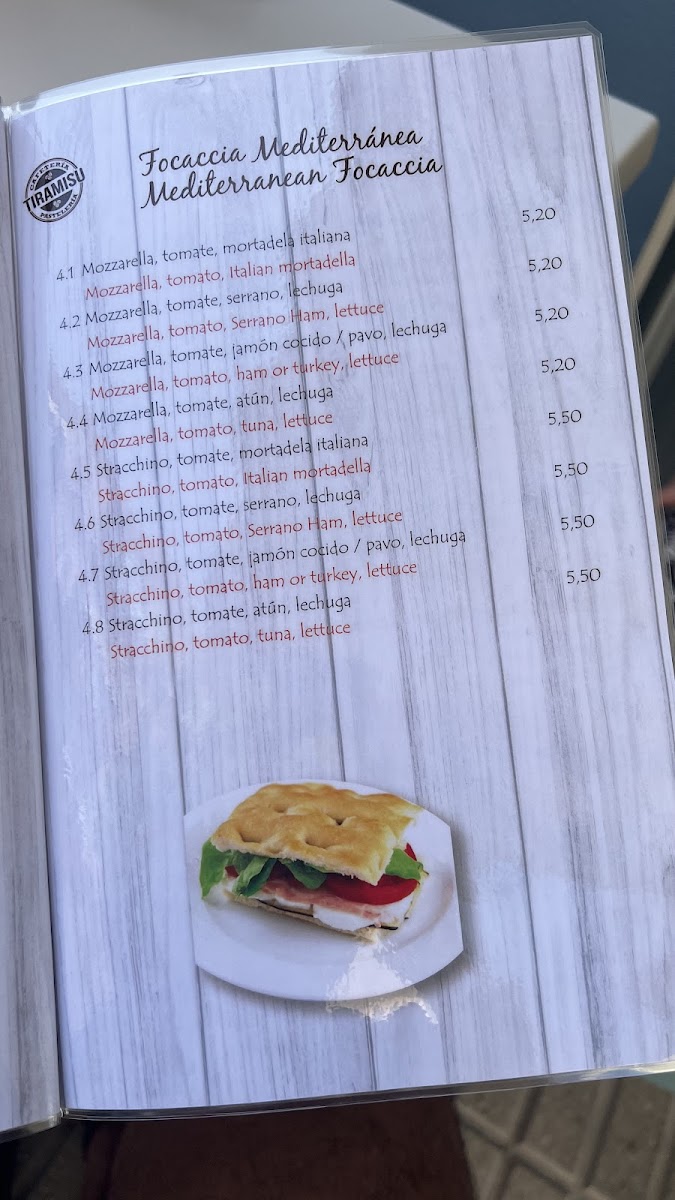 CAFETERÍA
TIRAMISÚ
PASTELERÍA
Focaccia Mediterránea
Mediterranean Focaccia
4.1 Mozzarella, tomate, mortadela italiana 5,20
Mozzarella, tomato, Italian mortadella
4.2 Mozzarella, tomate, serrano, lechuga 5,20
Mozzarella, tomato, Serrano Ham, lettuce
4.3 Mozzarella, tomate, jamón cocido / pavo, lechuga 5,20
Mozzarella, tomato, ham or turkey, lettuce
4.4 Mozzarella, tomate, atún, lechuga 5,20
Mozzarella, tomato, tuna, lettuce
4.5 Stracchino, tomate, mortadela italiana 5,50
Stracchino, tomato, Italian mortadella
4.6 Stracchino, tomate, serrano, lechuga 5,50
Stracchino, tomato, Serrano Ham, lettuce
4.7 Stracchino, tomate, jamón cocido / pavo, lechuga 5,50
Stracchino, tomato, ham or turkey, lettuce
4.8 Stracchino, tomate, atún, lechuga 5,50
Stracchino, tomato, tuna, lettuce